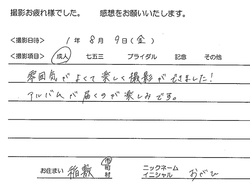 撮影お疲れ様でした。 感想をお願いいたします。
<撮影日時> 1年 8月 9日(金)
<撮影項目> 成人 七五三 ブライダル 記念 その他
雰囲気がよくて楽しく撮影ができました!
アルバムが届くのが楽しみです。
お住まい 稲敷 市 町 村 ニックネーム イニシャル